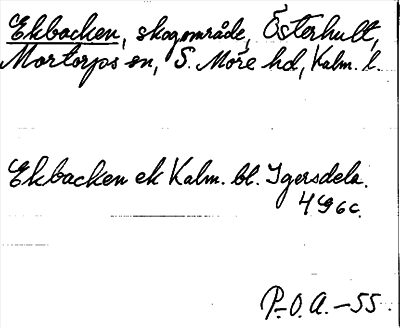 Ekbacken, skogområde, Österhult,
Mortorps sn, S. Möre hd, Kalm. l.
Ekbacken ek Kalm. bl. Igersdela.
4G6c.
P.O.A. -55